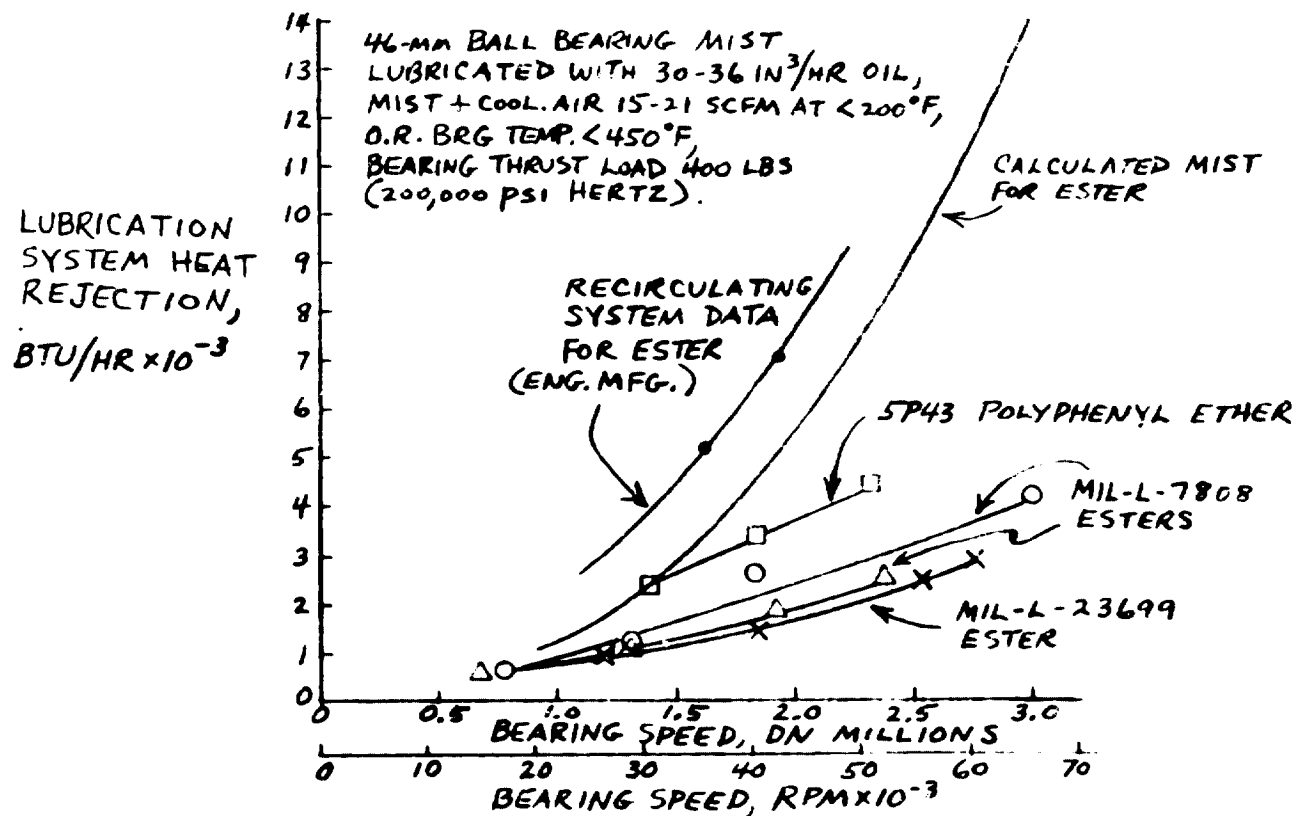 14
13
12
11
10
9
8
7
6
5
4
3
2
1
0
46-mm BALL BEARING MIST
LUBRICATED WITH 30-36 IN³/HR OIL,
MIST + COOL. AIR 15-21 SCFM AT <200°F,
O.R. BRG TEMP. <450°F,
BEARING THRUST LOAD 400 LBS
(200,000 PSI HERTZ).
CALCULATED MIST
FOR ESTER
LUBRICATION
SYSTEM HEAT
REJECTION,
BTU/HR×10⁻³
RECIRCULATING
SYSTEM DATA
FOR ESTER
(ENG. MFG.)
5P43 POLYPHENYL ETHER
MIL-L-7808
ESTERS
MIL-L-23699
ESTER
0 0.5 1.0 1.5 2.0 2.5 3.0
BEARING SPEED, DN MILLIONS
0 10 20 30 40 50 60 70
BEARING SPEED, RPM×10⁻³